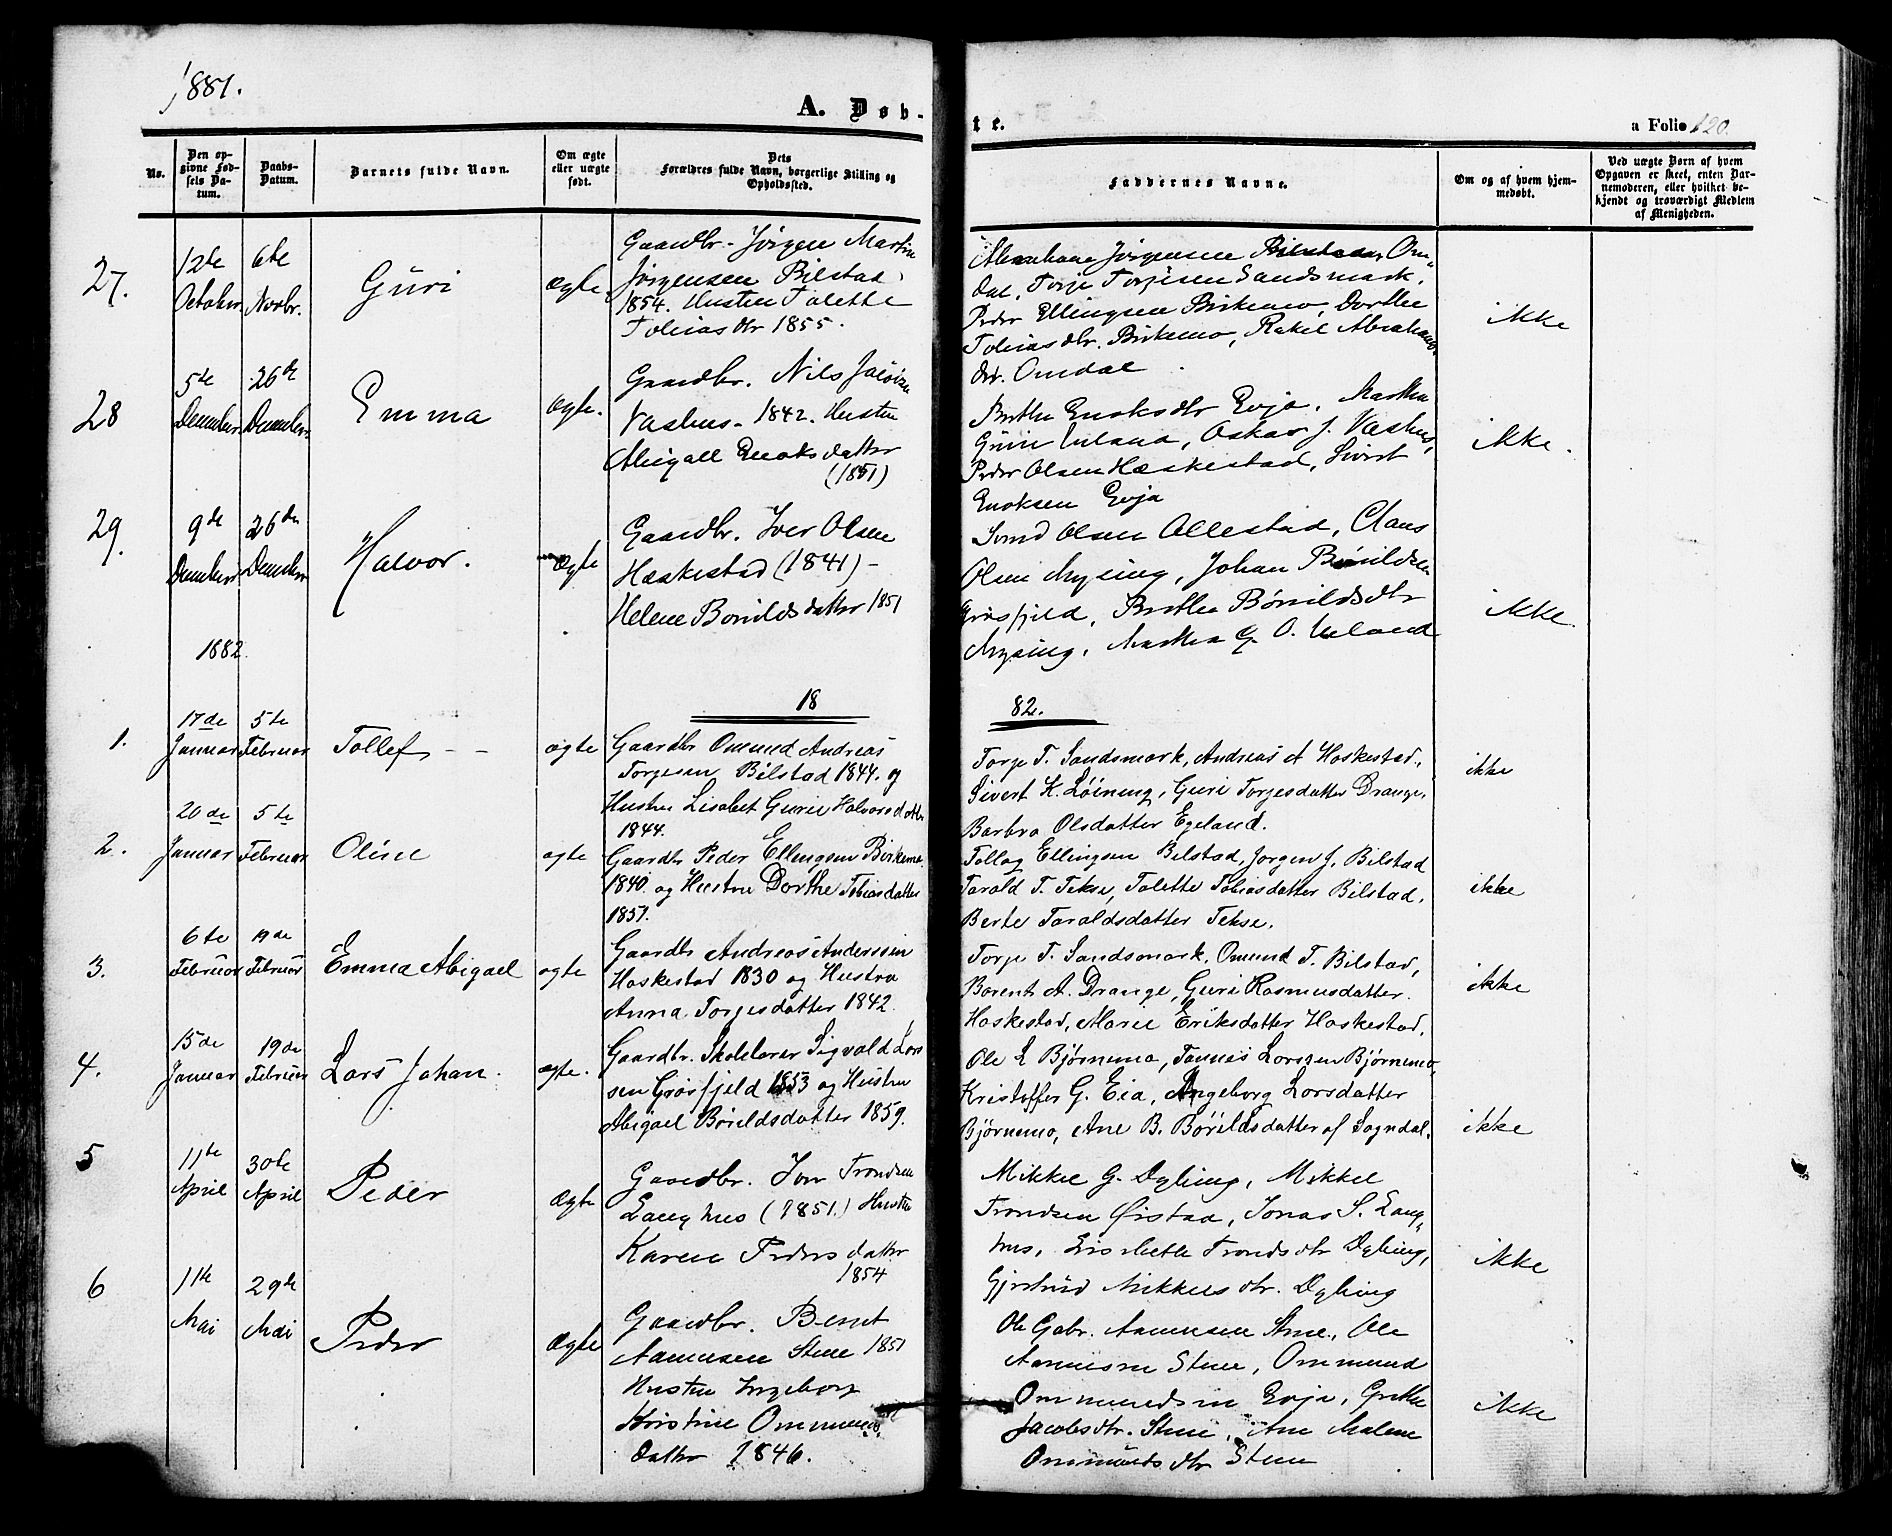 1881.
A. Døb-
te.
a Folio 120.
No.
Den op-
givne Fød-
sels Da-
tum.
Daabs-
Datum.
Barnets fulde Navn.
Om ægte
eller uægte
født.
Dets
Forældres fulde Navn, borgerlige Stilling og
Opholdssted.
Faddernes Navne.
Om og af hvem hjem-
medøbt.
Ved uægte Børn af hvem
Opgaven er skeet, enten Bar-
nemoderen, eller hvilket be-
kjendt og troværdigt Medlem
af Menigheden.
27.
12te
October
6te
Novbr.
Guri
ægte
Gaardbr. Jørgen Martin
Jørgensen Bilstad
1854. Hustru Talette
Tobias dtr 1855.
Abraham Jørgensen Bilstad, Om-
dal, Torje Torjesen Sandsmark,
Peder Ellingsen Birkemo, Dorthe
Tobias dtr. Birkemo, Rakel Abrahams
dtr. Omdal
ikke
28
5te
December
26de
December
Emma
ægte.
Gaardbr. Nils
Vashus. 1842. Hustru
Abigael Enoks datter
(1851)
Berthe Enoksdtr Evja, Martha
Gurie Ueland, Oskar J. Vashus,
Peder Olsen Hæskestad, Sivert
Enoksen Evja
ikke.
29.
9de
December
26de
December
Halvor.
ægte
Gaardbr. Iver Olsen
Hæskestad (1841) -
Helene Børildsdatter 1851
Svend Olsen Ollestad, Claus
Olsen Mysing, Johan Børildsen
Grøsfjeld, Berthe Børildsdtr
Mysing, Martha G. O. Ueland
ikke.
1882.
18
82.
1.
17de
Januar
5te
Februar
Tollef
ægte
Gaardbr Ommund Andreas
Torgesen Bilstad 1844. og
Hustru Lisabet Gurie Halvorsdatter
1844.
Torge T. Sandsmark, Andreas A Heskestad,
Sivert K. Løining, Guri Torgesdatter Drange,
Barbro Olsdatter Egeland.
ikke
2.
20de
Januar
5te
Februar
Oline
ægte
Gaardbr Peder Ellingsen Birkemo
1840. og Hustru Dorthe Tobiasdatter
1851.
Tollag Ellingsen Bilstad, Jørgen J. Bilstad
Tarald T. Tekse, Talette Tobiasdatter Bilstad,
Berte Taraldsdatter Tekse.
ikke
3.
6te
Februar
19de
Februar
Emma Abigael
ægte
Gaardbr Andreas Anderssen
Heskestad 1830 og Hustru
Anna Torgesdatter 1842
Torge T. Sandsmark, Omund T. Bilstad,
Barent A. Drange, Guri Rasmusdatter
Heskestad, Marie Eriksdatter Heskestad.
ikke
4.
15de
Januar
19de
Februar
Lars Johan.
ægte.
Gaardbr. Skolelærer Sigvald Lars
sen Grøsfjeld 1853 og Hustru
Abigael Børildsdatter 1859.
Ole L Bjørnemo, Tønnes Larssen Bjørnemo,
Kristoffer G. Eia, Angeborg Larsdatter
Bjørnemo, Ane B. Børildsdatter af Sogndal.
ikke
5
11te
April
30te
April
Peder
ægte
Gaardbr. Iver Trondsen
Langhus (1851.) Hustru
Karen Peders datter
1854
Mikkel G. Dybing, Mikkel
Trondsen Ørstad, Jonas S. Lang-
hus, Lisabeth Tronds dtr Dybing,
Gjertrud Mikkels dtr. Dybing
ikke
6
11te
Mai
29de
Mai
Peder
ægte
Gaardbr. Bernt
Aanensen Stene 1851
Hustru Ingeborg
Kristine Ommunds
datter 1846.
Ole Gabr. Aanensen Stene, Ole
Aanensen Stene, Ommund
Ommundsen Evja, Grethe
Jacobsdtr. Stene, Ane Malene
Ommunds dtr Stene
ikke